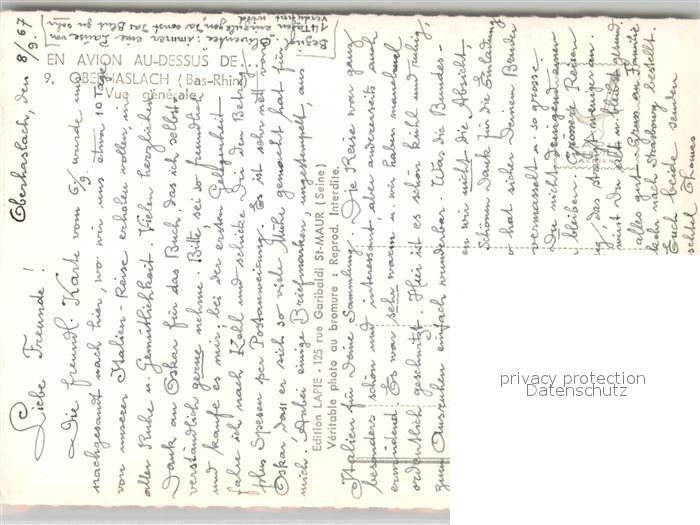 Oberhaslach, den 8/9. 67
Liebe Freunde!
Die freundl. Karte vom 6/9. wurde uns
nachgesandt nach hier, wo wir uns etwa 10 Tage
von unserer Italien-Reise erholen wollen, in
aller Ruhe u. Gemütlichkeit. Vielen herzlichen
Dank an Oskar für das Buch, das ich selbst-
verständlich gerne nehme. Bitte, sei so freundlich
und kaufe es mir; bei der ersten Gelegenheit
fahre ich nach Kehl und schicke Dir den Betrag
plus Spesen per Postanweisung. Es ist sehr nett von
Oskar, dass er sich so viel Mühe gemacht hat für
mich. Anbei einige Briefmarken, ungestempelt, aus
Italien für Deine Sammlung. Die Reise war ganz
besonders schön und interessant, aber andererseits auch
ermüdend. Es war sehr warm u. wir haben manchmal
ordentlich geschwitzt. Hier ist es schön kühl und ruhig,
zum Ausruhen einfach wunderbar. Was die Bundes-
en wir nicht die Absicht,
Schönen Dank für die Einladung
o hat sicher Deinem Bruder
vermasselt u. so grosse
Du nicht dringend einer
bleiben. Grössere Reisen
ig, das strengt weniger an.
mit Du alt u. bleibst gesund
alles gut. Gruss an Familie
kehr nach Strasbourg bestellt.
Euch beide senden
EN AVION AU-DESSUS DE...
9. OBERHASLACH (Bas-Rhin)
Vue générale
Edition LAPIE - 125 rue Garibaldi St-MAUR (Seine)
Véritable photo au bromure : Reprod. Interdite.
privacy protection
Datenschutz